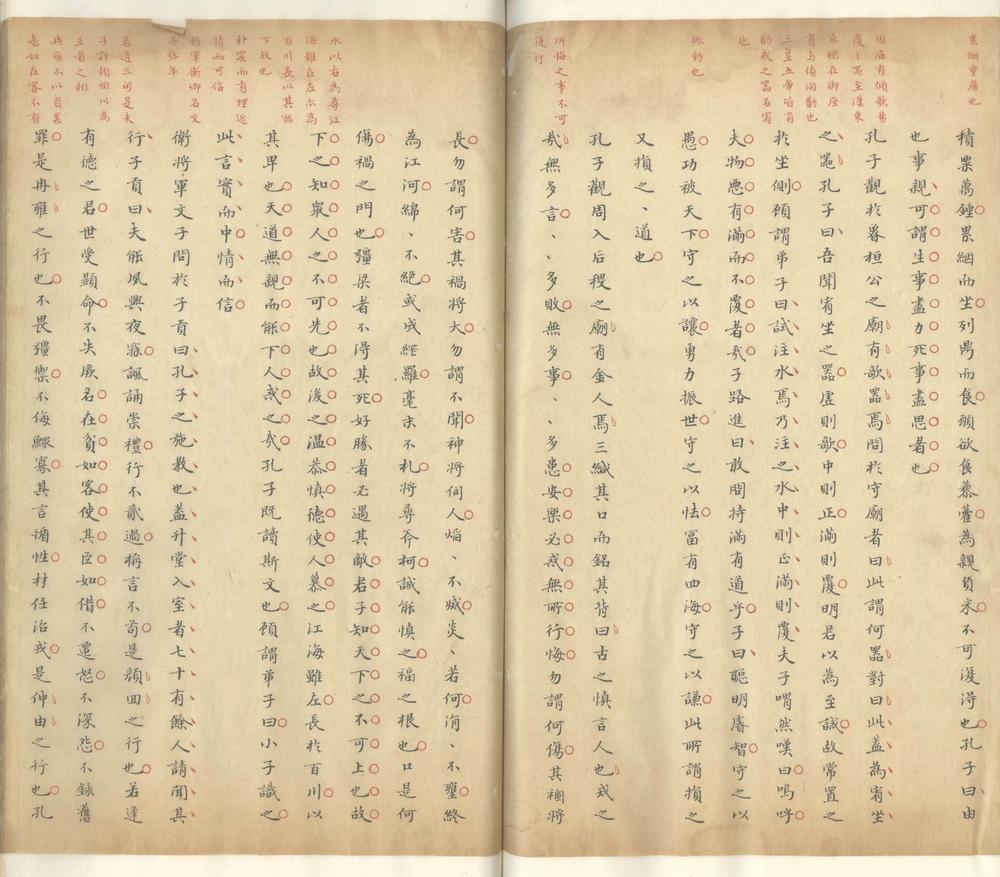 累絪重席也
周庙有傾欹易
覆之器至漢東
京猶在御座
宥与侑同勸也
三皇五帝皆有
勸戒之器名宥
巵
振動也
所悔之事不可
復行
積累萬鍾累絪而坐列鼎而食願欲食藜藿為親負米不可復得也孔子曰由
也事親可謂生事盡力死事盡思者也
孔子觀於魯桓公之廟有欹器焉問於守廟者曰此謂何器對曰此蓋為宥坐
之器孔子曰吾聞宥坐之器虛則欹中則正滿則覆明君以為至誡故常置之
於坐側顧謂弟子曰試注水焉乃注之水中則正滿則覆夫子喟然嘆曰嗚呼
夫物惡有滿而不覆者哉子路進曰敢問持滿有道乎子曰聰明睿智守之以
愚功被天下守之以讓勇力振世守之以怯富有四海守之以謙此所謂損之
又損之、道也
孔子觀周入后稷之廟有金人焉三緘其口而銘其背曰古之慎言人也戒之
哉無多言、、多敗無多事、、多患安樂必戒無所行悔勿謂何傷其禍將
水以右為尊江
海雖在左亦為
百川長以其能
下故也
朴實而有理近
情而可信
將軍衛卿名文
子弥牟
若逢三句是夫
子許顏回以為
王者之相
冉雍不以貧累
志如在客不有
長勿謂何害其禍將大勿謂不聞神將伺人焰、不滅炎、若何涓、不壅終
為江河綿、不絕或成網羅毫末不札將尋斧柯誠能慎之福之根也口是何
傷禍之門也彊梁者不得其死好勝者必遇其敵君子知天下之不可上也故
下之知眾人之不可先也故後之溫恭慎德使人慕之江海雖左長於百川以
其卑也天道無親而能下人戒之哉孔子既讀斯文也顧謂弟子曰小子識之
此言實而中情而信
衛將軍文子問於子貢曰孔子之施教也蓋升堂入室者七十有餘人請聞其
行子貢曰夫能夙興夜寐諷誦崇禮行不貳過稱言不苟是顏回之行也若逢
有德之君世受顯命不失厥名在貧如客使其臣如借不遷怒不深怨不錄舊
罪是冉雍之行也不畏彊禦不侮鰥寡其言循性材任治戎是仲由之行也孔